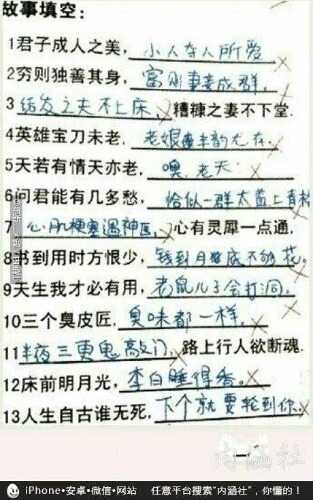 故事填空：
1君子成人之美，小人夺人所爱
2穷则独善其身，富则妻妾成群，
3结发之夫不上床，糟糠之妻不下堂.
4英雄宝刀未老，老娘风韵尤存。
5天若有情天亦老，噢，老天
6问君能有几多愁，恰似一群太监上青楼
7心肌梗塞遇神医，心有灵犀一点通，
8书到用时方恨少，钱到月底不够花。
9天生我才必有用，老鼠儿子会打洞，
10三个臭皮匠，臭味都一样，
11半夜三更鬼敲门，路上行人欲断魂.
12床前明月光，李白睡得香。
13人生自古谁无死，下个就要轮到你.
内涵社
iPhone•安卓•微信•网站 任意平台搜索"内涵社"，你懂的！